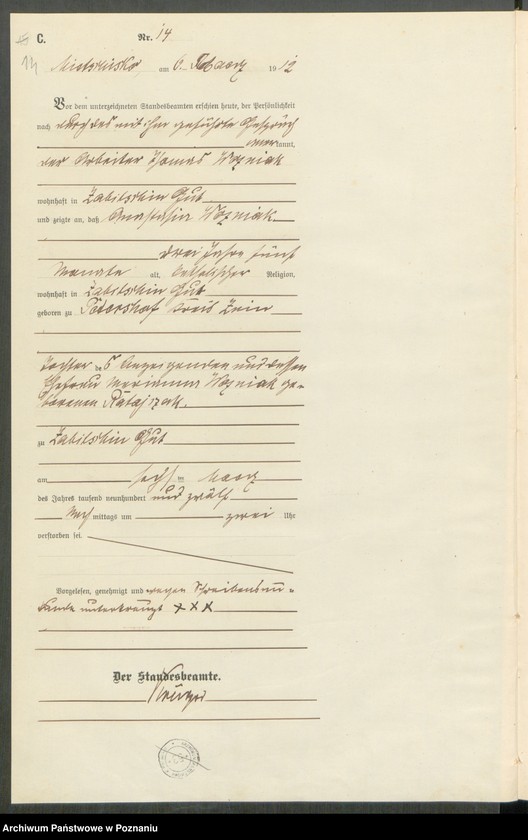 C.
Nr. 14
14
Mietschisko, am 6. 1912
Vor dem unterzeichneten Standesbeamten erschien heute, der Persönlichkeit
nach durch das mit ihm geführte Gespräch
aner kannt,
der Arbeiter Thomas Wozniak
wohnhaft in Zabitschin Gut
und zeigte an, daß Anastasia Wozniak
drei Jahre fünf
Monate alt, katholischer Religion,
wohnhaft in Zabitschin Gut
geboren zu Petershof Kreis Znin
Tochter des Anzeigenden und dessen
Ehefrau Marianna Wozniak ge-
borenen Ratajczak.
zu Zabitschin Gut
am sechs ten
des Jahres tausend neunhundert und zwölf
Nach mittags um zwei Uhr
verstorben sei.
Vorgelesen, genehmigt und wegen Schreibensun-
kunde unterkreuzt + + +
Der Standesbeamte.
Archiwum Państwowe w Poznaniu